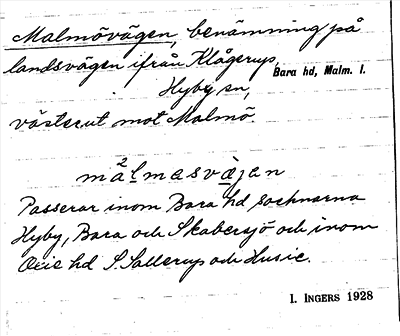 Malmövägen benämning på
landsvägen ifrån Klågerup,
Bara hd, Malm. l.
Hyby sn,
västerut mot Malmö.
må²lmasvàjan
Passerar inom Bara hd socknarna
Hyby, Bara och Skabersjö och inom
Oxie hd S. Sallerup och Husie.
I. INGERS 1928